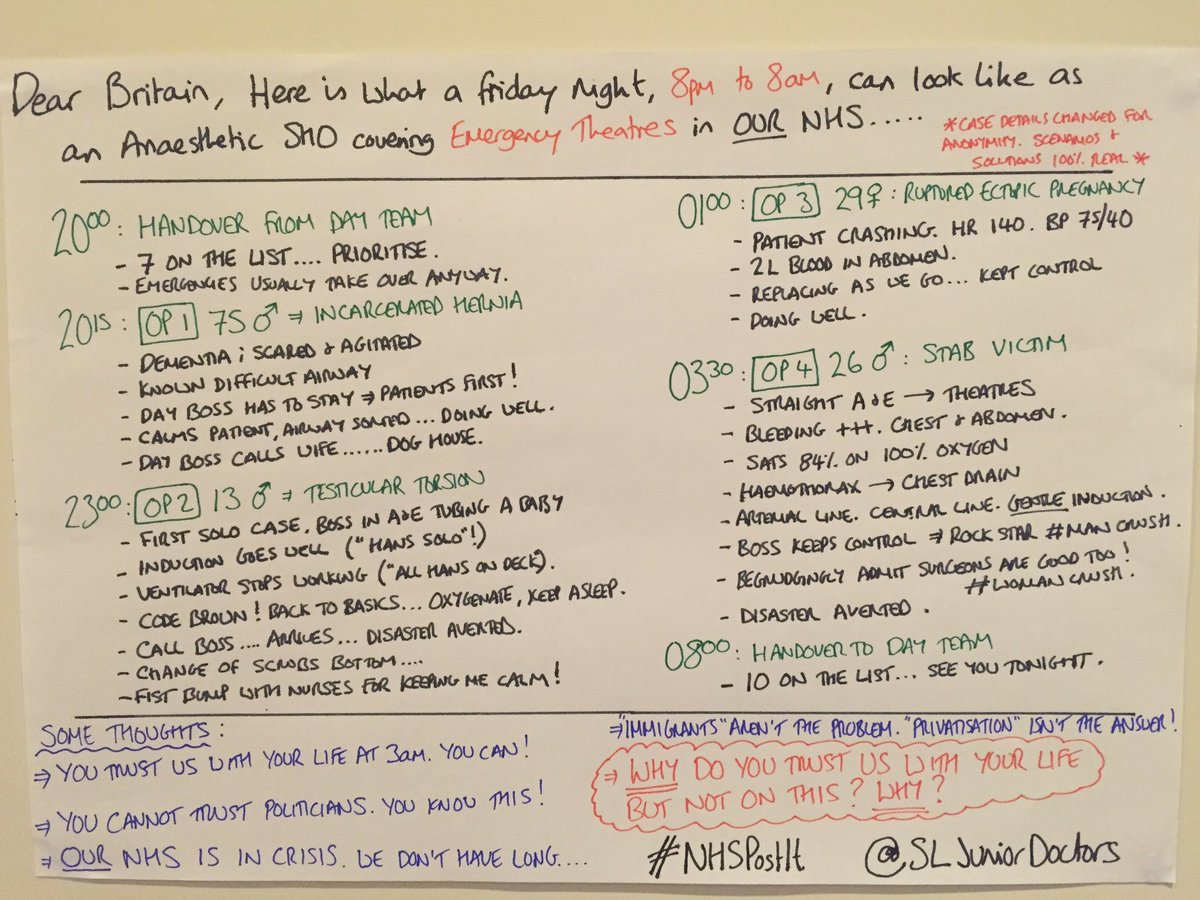 Dear Britain, Here is what a friday night, 8pm to 8am, can look like as
an Anaesthetic SHO covering Emergency Theatres in OUR NHS.....
*CASE DETAILS CHANGED FOR
ANONYMITY. SCENARIOS &
SOLUTIONS 100% REAL *
20⁰⁰: HANDOVER FROM DAY TEAM
- 7 ON THE LIST.... PRIORITISE.
- EMERGENCIES USUALLY TAKE OVER ANYWAY.
20¹⁵: OP 1 75 ♂ ⇒ INCARCERATED HERNIA
- DEMENTIA ; SCARED & AGITATED
- KNOWN DIFFICULT AIRWAY
- DAY BOSS HAS TO STAY ⇒ PATIENTS FIRST!
- CALMS PATIENT, AIRWAY SORTED... DOING WELL.
- DAY BOSS CALLS WIFE...... DOG HOUSE.
23⁰⁰: OP 2 13 ♂ ⇒ TESTICULAR TORSION
- FIRST SOLO CASE. BOSS IN A&E TUBING A BABY
- INDUCTION GOES WELL ("HANS SOLO"!)
- VENTILATOR STOPS WORKING ("ALL HANS ON DECK).
- CODE BROWN! BACK TO BASICS... OXYGENATE, KEEP ASLEEP.
- CALL BOSS.... ARRIVES... DISASTER AVERTED.
- CHANGE OF SCRUBS BOTTOM....
- FIST BUMP WITH NURSES FOR KEEPING ME CALM!
01⁰⁰: OP 3 29♀: RUPTURED ECTOPIC PREGNANCY
- PATIENT CRASHING. HR 140. BP 75/40
- 2L BLOOD IN ABDOMEN.
- REPLACING AS WE GO... KEPT CONTROL
- DOING WELL.
03³⁰: OP 4 26 ♂: STAB VICTIM
- STRAIGHT A&E → THEATRES
- BLEEDING +++. CHEST & ABDOMEN.
- SATS 84% ON 100% OXYGEN
- HAEMOTHORAX → CHEST DRAIN
- ARTERIAL LINE. CENTRAL LINE. GENTLE INDUCTION.
- BOSS KEEPS CONTROL ⇒ ROCK STAR #MAN CRUSH.
- BEGRUDGINGLY ADMIT SURGEONS ARE GOOD TOO!
#WOMAN CRUSH.
- DISASTER AVERTED.
08⁰⁰: HANDOVER TO DAY TEAM
- 10 ON THE LIST... SEE YOU TONIGHT.
SOME THOUGHTS:
⇒ YOU TRUST US WITH YOUR LIFE AT 3am. YOU CAN!
⇒ YOU CANNOT TRUST POLITICIANS. YOU KNOW THIS!
⇒ OUR NHS IS IN CRISIS. WE DON'T HAVE LONG....
⇒ "IMMIGRANTS" AREN'T THE PROBLEM. "PRIVATISATION" ISN'T THE ANSWER!
⇒ WHY DO YOU TRUST US WITH YOUR LIFE
BUT NOT ON THIS? WHY?
#NHSPostIt @SLJuniorDoctors